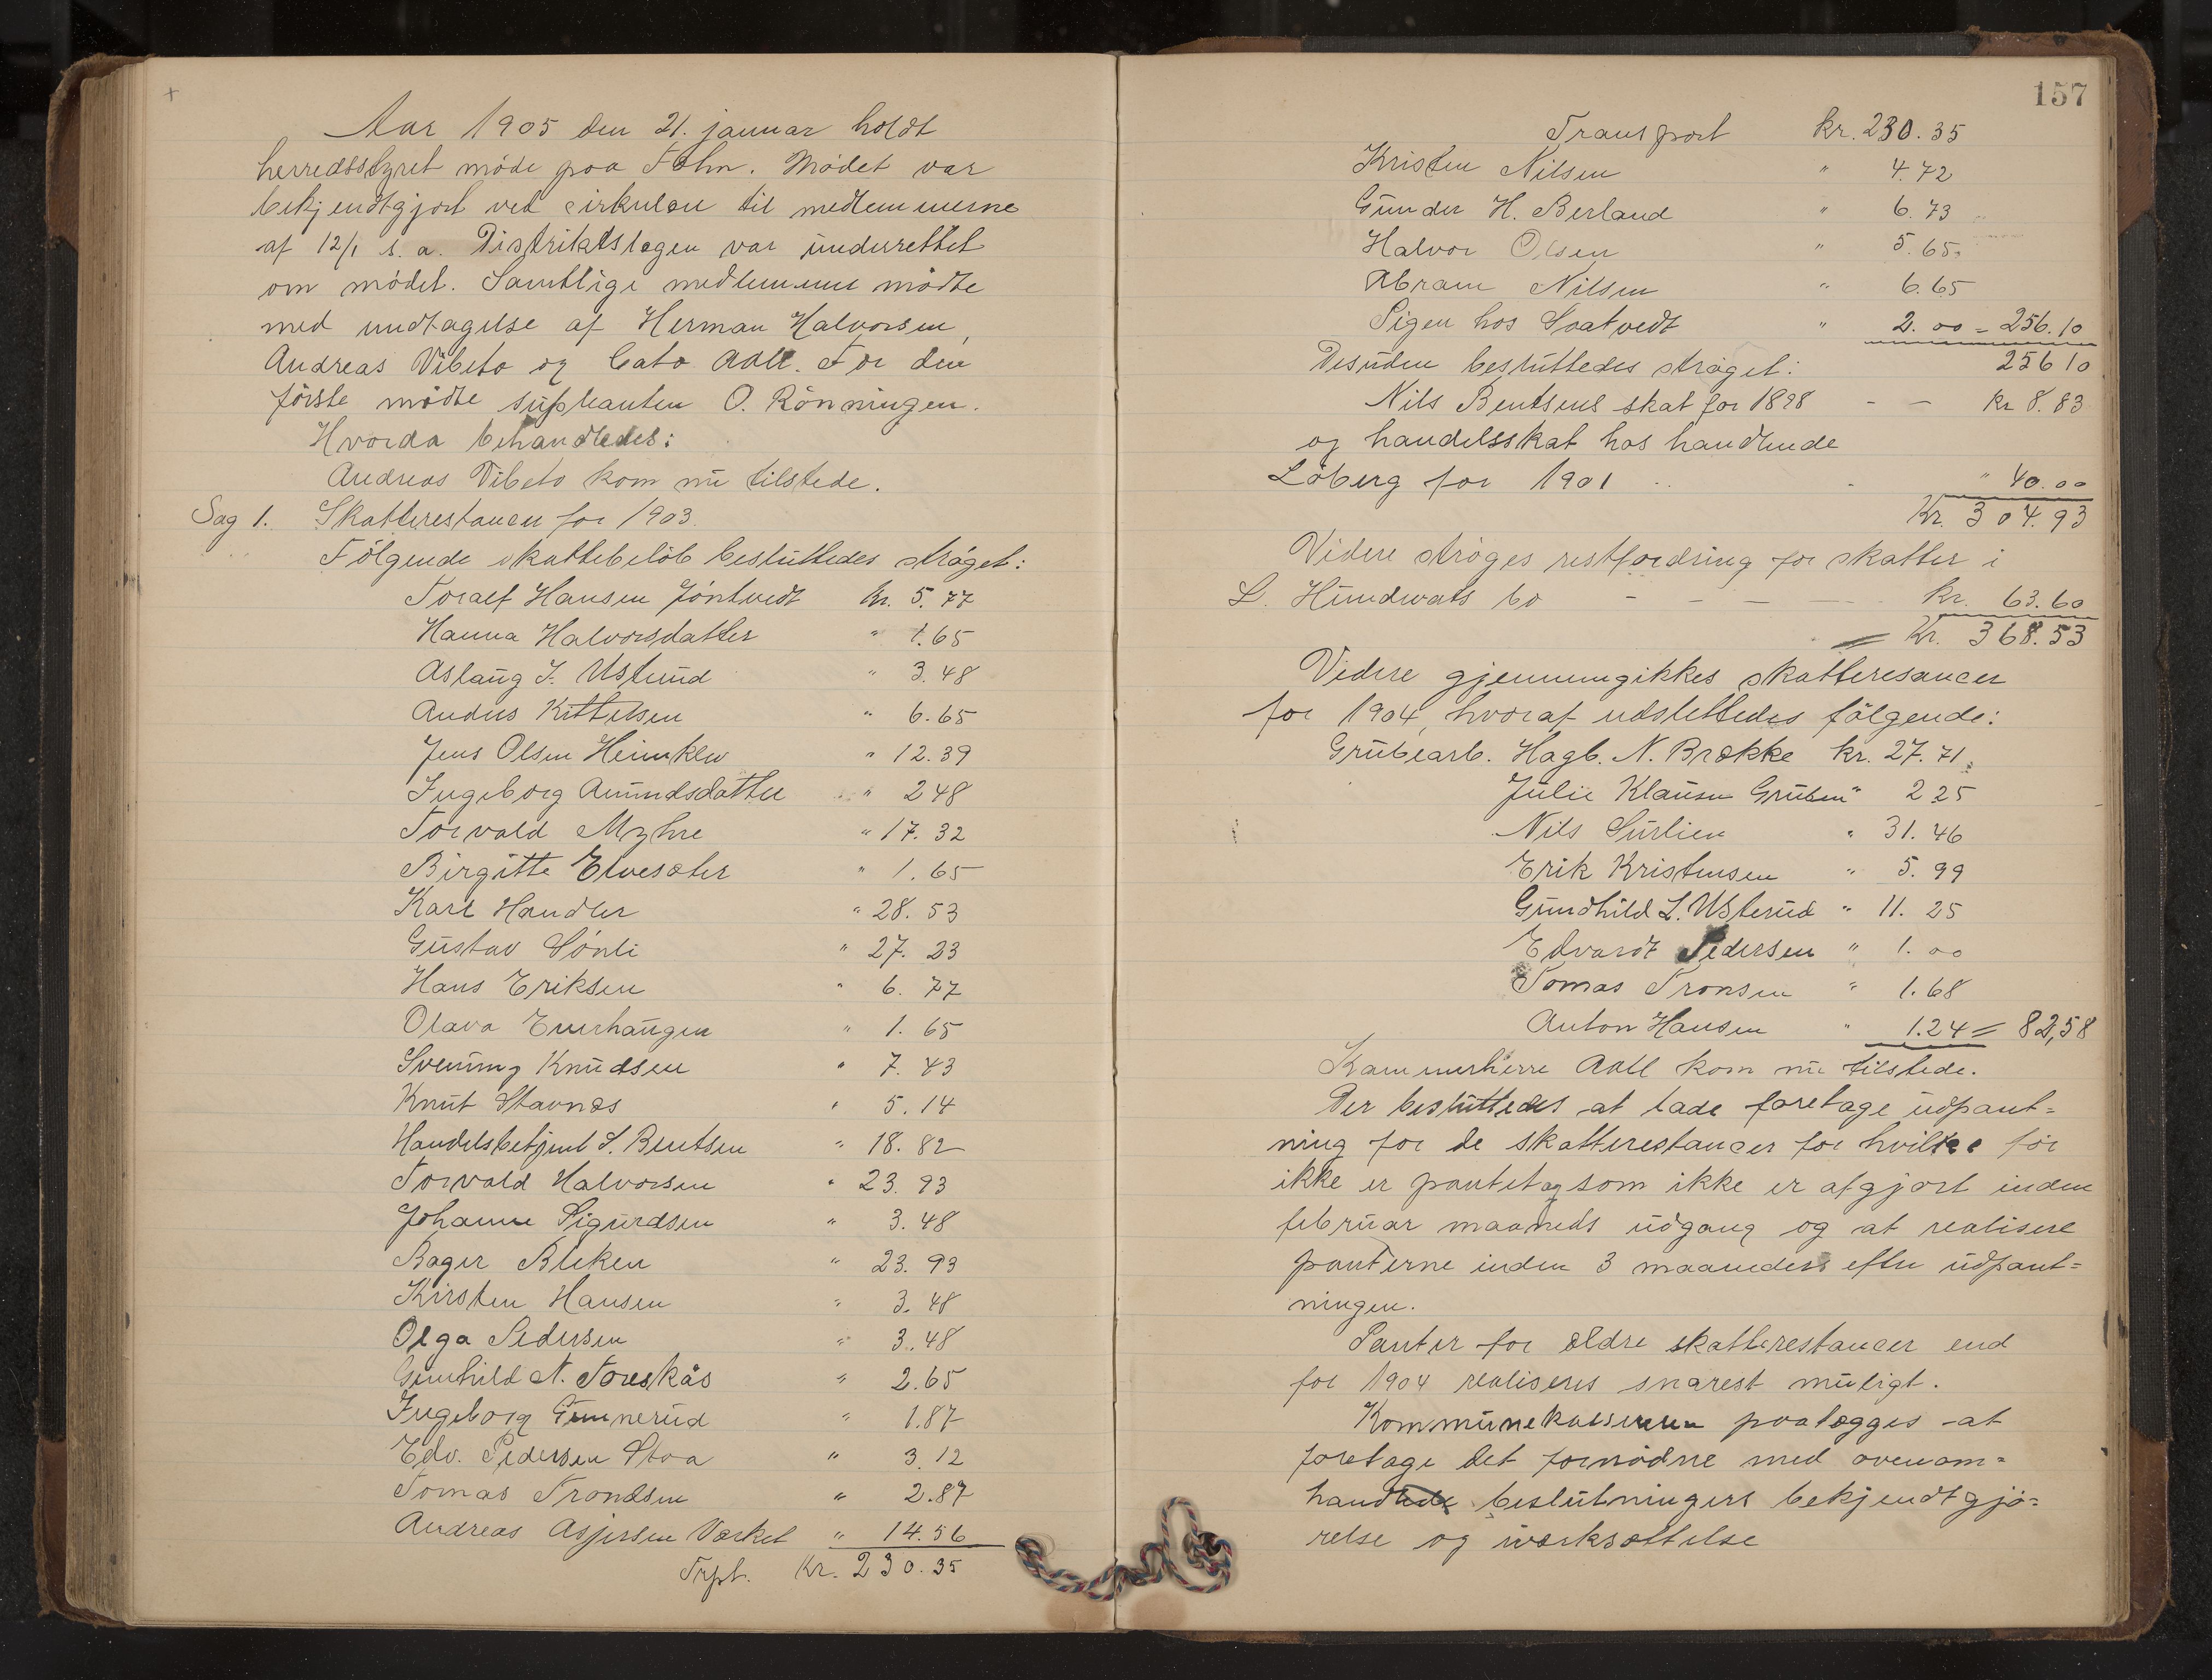 Aar 1905 den 21. januar holdt
herredsstyret möde paa Fehn. Mödet var
bekjendtgjort ved cirkulære til medlemmerne
af 12/1 s. a. Distriktslægen var underrettet
om mödet. Samtlige medlemmer mödte
med undtagelse af Herman Halvorsen,
Andreas Vibeto og Cato Aall. For den
förste mödte supleanten O. Rönningen.
Hvorda behandledes:
Andreas Vibeto kom nu tilstede.
Sag 1. Skatterestancer for 1903.
Fölgende skattebelöb besluttedes ströget:
Toralf Hansen Jöntvedt kr. 5.77
Hanna Halvorsdatter " 1.65
Aslaug J. Ustund " 3.48
Anders Kittelsen " 6.65
Jens Olsen Heimklev " 12.39
Ingeborg Amundsdatter " 2 48
Torvald Myhre " 17.32
Birgitte Elvesæter " 1.65
Karl Handler " 28.53
Gustav Sönli " 27.23
Hans Eriksen " 6.77
Olava Enerhaugen " 1.65
Svenung Knudsen " 7.43
Knut Stavnæs " 5.14
Handelsbetjent S. Bentsen " 18.82
Torvald Halvorsen " 23.93
Johanne Sigurdsen " 3.48
Bager Bleken " 23.93
Kirsten Hansen " 3.48
Olga Pedersen " 3.48
Gunhild N. Toreskås " 2.65
Ingeborg Gunnerud " 1.87
Edv. Pedersen Stoa " 3.12
Tomas Trondsen " 2.87
Andreas Asjersen Værket " 14.56
Trpt. Kr. 230.35
157
Transport kr. 230.35
Kristen Nilsen " 4.72
Gunder H. Berland " 6.73
Halvor Olsen " 5.65
Abram Nilsen " 6.65
Pigen hos Svatvedt " 2.00 = 256.10
256 10
Desuden besluttedes ströget:
Nils Bentsens skat for 1898 - - kr 8.83
og handelsskat hos handlende
Löberg for 1901 " 40.00
Kr. 304.93
Videre ströges restfordring for skatter i
L. Hundwats bo - - - - kr. 63.60
= Kr. 368.53
Videre gjennemgikkes skatteresancer
for 1904, hvoraf udslettedes fölgende:
Grubearb. Hagb. N. Brække kr. 27.71
Julie Klausen Gruben " 2 25
Nils Surlien " 31.46
Erik Kristensen " 5.99
Gundhild L. Usterud " 11.25
Edvardt Pedersen " 1.00
Tomas Tronsen " 1.68
Anton Hansen " 1.24 = 82,58
Kammerherre Aall kom nu tilstede.
Der besluttedes at lade foretage udpant=
ning for de skatterestancer for hvilke för
ikke er pantet og som ikke er afgjort inden
februar maaneds udgang og at realisere
panterne inden 3 maaneder efter udpant=
ningen.
Panter for ældre skatterestancer end
for 1904 realiseres snarest muligt.
Kommunekassereren paalægges at
foretage det fornödne med ovenom=
handlede beslutningers bekjendtgjö=
relse og iværksættelse